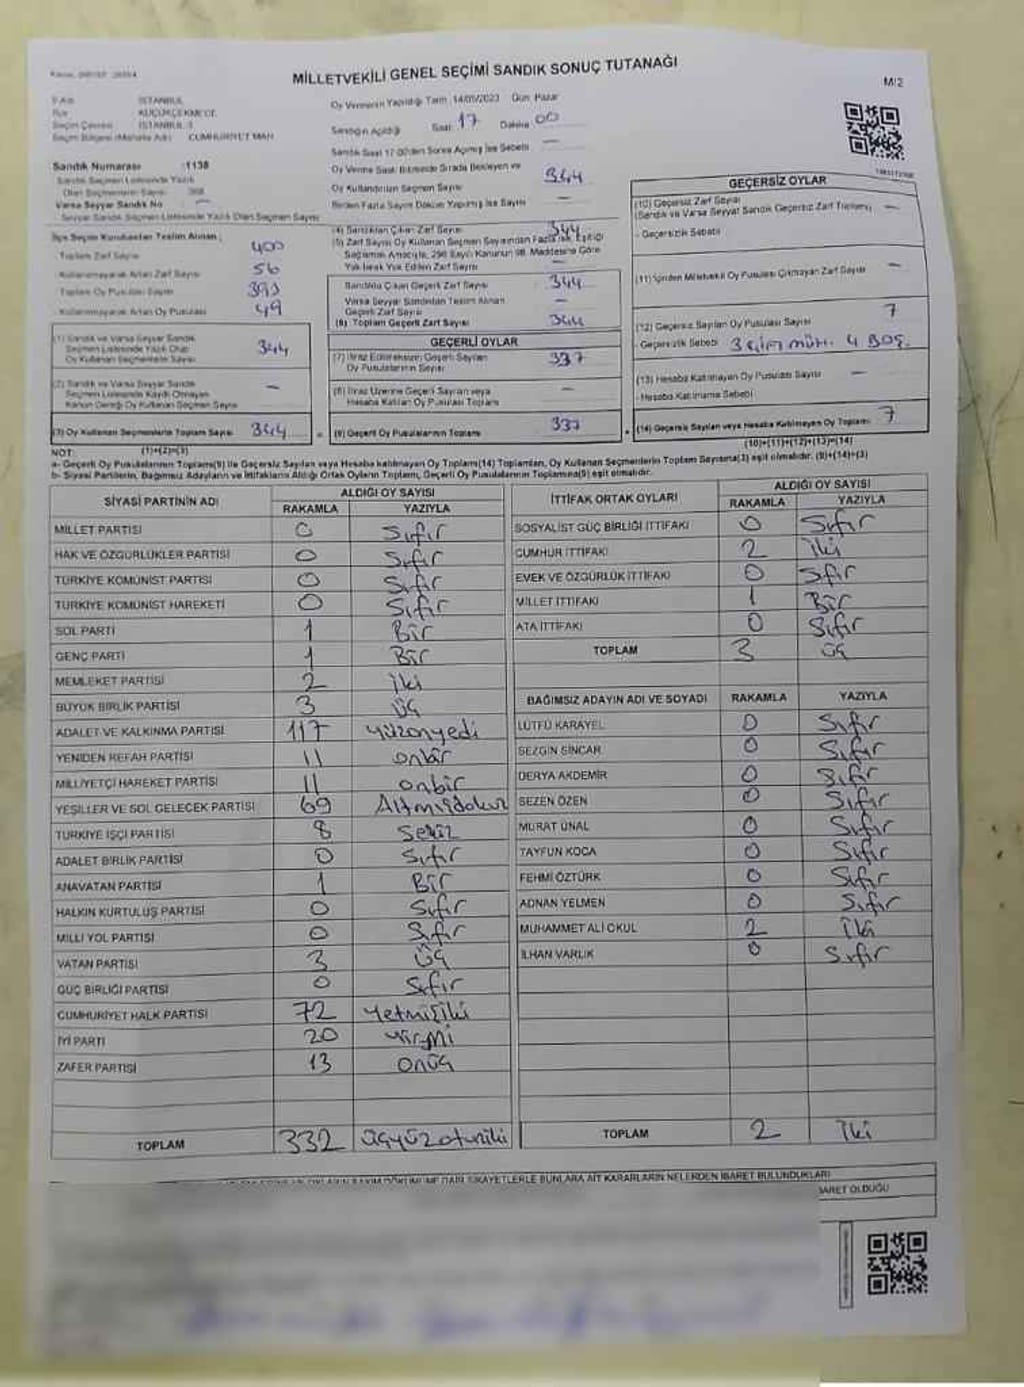 MİLLETVEKİLİ GENEL SEÇİMİ SANDIK SONUÇ TUTANAĞI
M/2
İSTANBUL
KÜÇÜKÇEKMECE
İSTANBUL
CUMHURİYET MAH
Oy Vermenin Yapıldığı Tarih 14/05/2023 Gün Pazar
Sandığın Açıldığı Saat 17 Dakika 00
Sandık Saat 17:00'den Sonra Açılmış İse Sebebi —
Oy Verme Saati Bitiminde Sırada Bekleyen ve
Oy Kullandırılan Seçmen Sayısı 344
Birden Fazla Sayım Döküm Yapılmış İse Sayısı —
Sandık Numarası :1138
Sandık Seçmen Listesinde Yazılı
Olan Seçmenlerin Sayısı
Varsa Seyyar Sandık No —
Seyyar Sandık Seçmen Listesinde Yazılı Olan Seçmen Sayısı
İlçe Seçim Kurulundan Teslim Alınan;
- Toplam Zarf Sayısı 400
- Kullanılmayarak Artan Zarf Sayısı 56
- Toplam Oy Pusulası Sayısı 393
- Kullanılmayarak Artan Oy Pusulası 49
(1) Sandık ve Varsa Seyyar Sandık
Seçmen Listesinde Yazılı Olup
Oy Kullanan Seçmenlerin Sayısı 344
(2) Sandık ve Varsa Seyyar Sandık
Seçmen Listesinde Kaydı Olmayan
Kanun Gereği Oy Kullanan Seçmen Sayısı —
(3) Oy Kullanan Seçmenlerin Toplam Sayısı 344
(4) Sandıktan Çıkan Zarf Sayısı 344
(5) Zarf Sayısı Oy Kullanan Seçmen Sayısından Fazla ise, Eşitliği
Sağlamak Amacıyla, 298 Sayılı Kanunun 98. Maddesine Göre
Yakılarak Yok Edilen Zarf Sayısı —
Sandıkta Çıkan Geçerli Zarf Sayısı 344
Varsa Seyyar Sandıktan Teslim Alınan
Geçerli Zarf Sayısı —
(6) Toplam Geçerli Zarf Sayısı 344
GEÇERLİ OYLAR
(7) İtiraz Edilmeksizin Geçerli Sayılan
Oy Pusulalarının Sayısı 337
(8) İtiraz Üzerine Geçerli Sayılan veya
Hesaba Katılan Oy Pusulası Toplamı —
(9) Geçerli Oy Pusulalarının Toplamı 337
GEÇERSİZ OYLAR
(10) Geçersiz Zarf Sayısı
(Sandık ve Varsa Seyyar Sandık Geçersiz Zarf Toplamı) —
- Geçersizlik Sebebi
(11) İçinden Milletvekili Oy Pusulası Çıkmayan Zarf Sayısı —
(12) Geçersiz Sayılan Oy Pusulası Sayısı 7
- Geçersizlik Sebebi 3 çift müh. 4 BOŞ.
(13) Hesaba Katılmayan Oy Pusulası Sayısı —
- Hesaba Katılmama Sebebi
(14) Geçersiz Sayılan veya Hesaba Katılmayan Oy Toplamı 7
NOT: (1)+(2)=(3) (10)+(11)+(12)+(13)=(14)
a- Geçerli Oy Pusulaları Toplamı(9) ile Geçersiz Sayılan veya Hesaba katılmayan Oy Toplamı(14) Toplamları, Oy Kullanan Seçmenlerin Toplam Sayısına(3) eşit olmalıdır. (9)+(14)=(3)
b- Siyasi Partilerin, Bağımsız Adayların ve İttifakların Aldığı Ortak Oyların Toplamı, Geçerli Oy Pusulalarının Toplamına(9) eşit olmalıdır.
SİYASİ PARTİNİN ADI ALDIĞI OY SAYISI
RAKAMLA YAZIYLA
MİLLET PARTİSİ 0 Sıfır
HAK VE ÖZGÜRLÜKLER PARTİSİ 0 Sıfır
TÜRKİYE KOMÜNİST PARTİSİ 0 Sıfır
TÜRKİYE KOMÜNİST HAREKETİ 0 Sıfır
SOL PARTİ 1 Bir
GENÇ PARTİ 1 Bir
MEMLEKET PARTİSİ 2 iki
BÜYÜK BİRLİK PARTİSİ 3 üç
ADALET VE KALKINMA PARTİSİ 117 yüzonyedi
YENİDEN REFAH PARTİSİ 11 onbir
MİLLİYETÇİ HAREKET PARTİSİ 11 onbir
YEŞİLLER VE SOL GELECEK PARTİSİ 69 Altmışdokuz
TÜRKİYE İŞÇİ PARTİSİ 8 sekiz
ADALET BİRLİK PARTİSİ 0 Sıfır
ANAVATAN PARTİSİ 1 Bir
HALKIN KURTULUŞ PARTİSİ 0 Sıfır
MİLLİ YOL PARTİSİ 0 Sıfır
VATAN PARTİSİ 3 üç
GÜÇ BİRLİĞİ PARTİSİ 0 Sıfır
CUMHURİYET HALK PARTİSİ 72 yetmişiki
İYİ PARTİ 20 yirmi
ZAFER PARTİSİ 13 onüç
TOPLAM 332 üçyüzotuziki
İTTİFAK ORTAK OYLARI ALDIĞI OY SAYISI
RAKAMLA YAZIYLA
SOSYALİST GÜÇ BİRLİĞİ İTTİFAKI 0 Sıfır
CUMHUR İTTİFAKI 2 iki
EMEK VE ÖZGÜRLÜK İTTİFAKI 0 Sıfır
MİLLET İTTİFAKI 1 Bir
ATA İTTİFAKI 0 Sıfır
TOPLAM 3 üç
BAĞIMSIZ ADAYIN ADI VE SOYADI RAKAMLA YAZIYLA
LÜTFÜ KARAYEL 0 Sıfır
SEZGİN SİNCAR 0 Sıfır
DERYA AKDEMİR 0 Sıfır
SEZEN ÖZEN 0 Sıfır
MURAT ÜNAL 0 Sıfır
TAYFUN KOCA 0 Sıfır
FEHMİ ÖZTÜRK 0 Sıfır
ADNAN YELMEN 0 Sıfır
MUHAMMET ALİ OKUL 2 iki
İLHAN VARLIK 0 Sıfır
TOPLAM 2 İki
ŞİKAYETLERLE BUNLARA AİT KARARLARIN NELERDEN İBARET BULUNDUKLARI
İBARET OLDUĞU